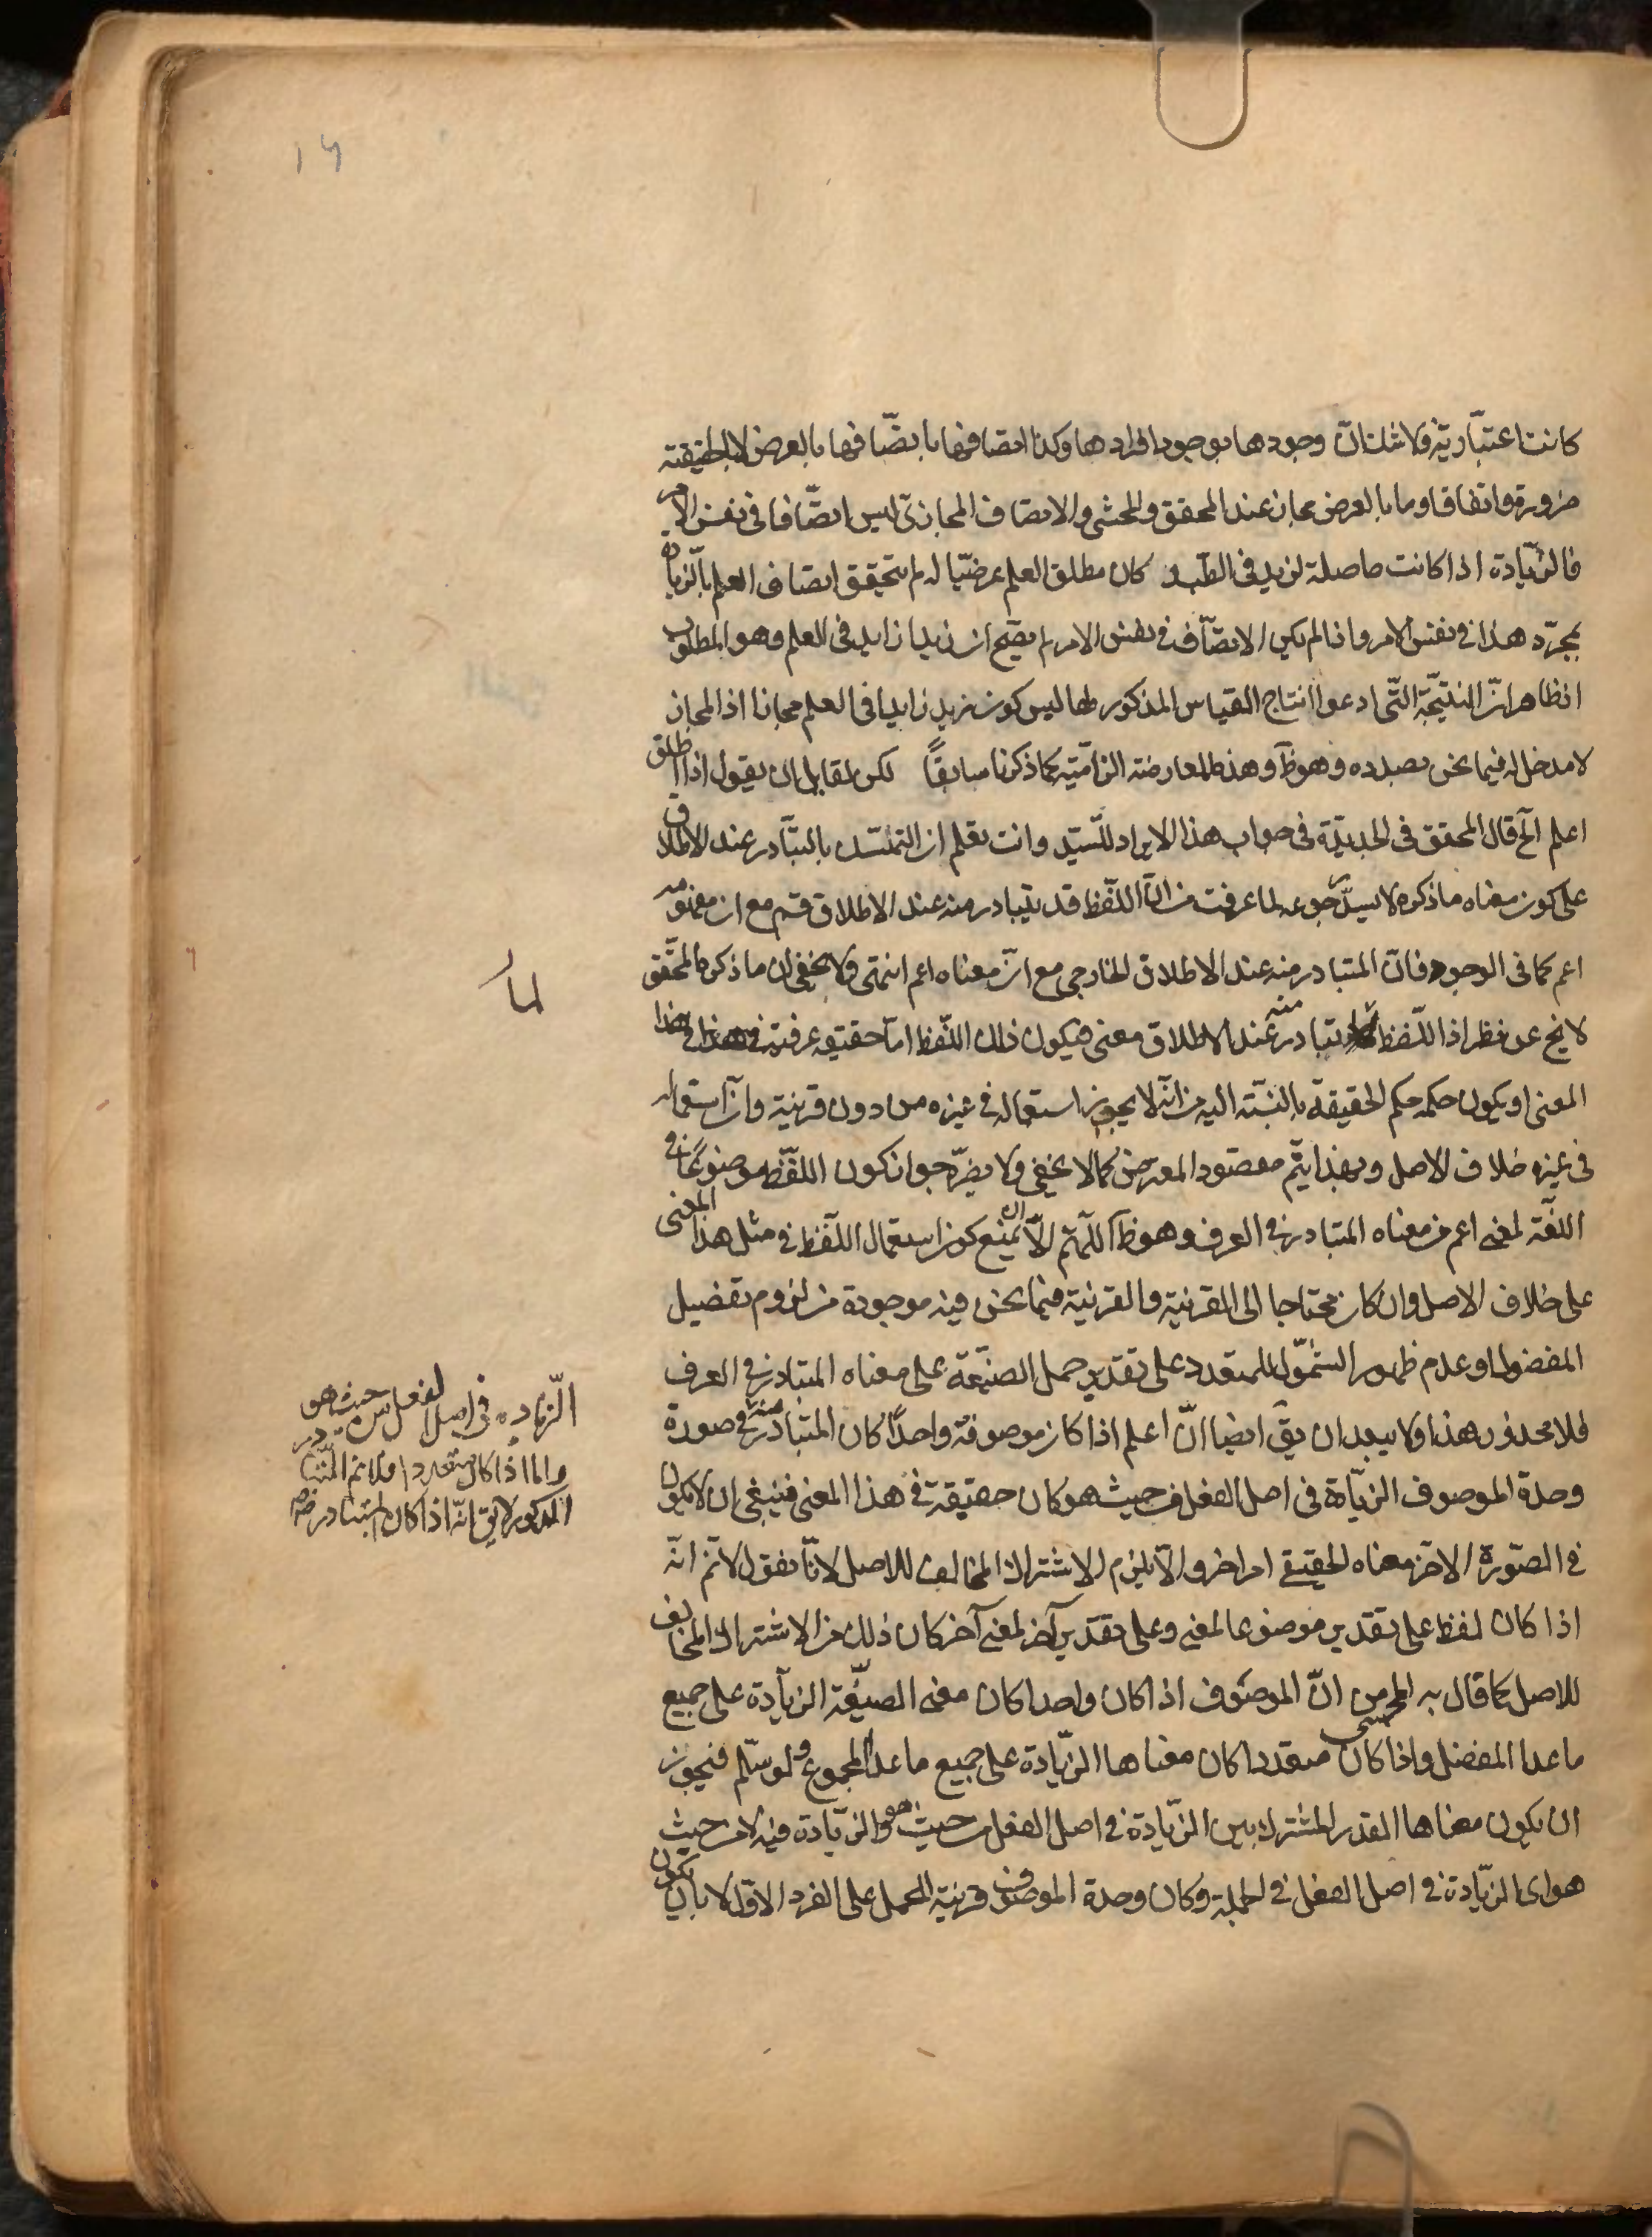 ١٦
كانت اعتبارية فلا شك ان وجودها بوجود افرادها وكذا اتصافها باتصافها بالعرض لا بالحقيقة
ضرورة واتفاقا وما بالعرض مجاز عند المحقق والمحشى والاتصاف المجازى ليس اتصافا فى نفس الامر
فالزيادة اذا كانت حاصلة لزيد فى الطب كان مطلق العلم عرضيا له لم يتحقق اتصاف العلم بالزيادة
بمجرد هذا فى نفس الامر واذا لم يكن الاتصاف فى نفس الامر لم يصح ان زيدا زايد فى العلم وهو المطلوب
الظاهر ان النتيجة التى ادعوا انتاج القياس المذكور لها ليس كون زيد زايدا فى العلم مجازا اذ المجاز
لا مدخل له فيما نحن بصدده وهو ظ وهذه المعارضة الزامية كما ذكرنا سابقا لكن لمقابل ان يقول اذا اطلق
اعلم آلخ قال المحقق فى الجديدة فى جواب هذا الايراد للسيد وانت تعلم ان التمسك بالتبادر عند الاطلاق
على كون معناه ما ذكره لا يسد جوعه لما عرفت من ان اللفظ قد يتبادر منه عند الاطلاق قسم مع ان مفهومه
اعم كما فى الوجود فان المتبادر منه عند الاطلاق الخارجى مع ان معناه اعم انتهى ولا يخفى ان ما ذكره المحقق
لا يخ عن نظر اذ اللفظ يتبادر منه عند الاطلاق معنى فيكون ذلك اللفظ اما حقيقة عرفية فى هذا
المعنى او يكون حكمه حكم الحقيقة بالنسبة اليه من انه لا يجوز استعماله فى غيره من دون قرينة وان استعماله
فى غيره خلاف الاصل وبهذا يتم مقصود المعترض كما لا يخفى ولا يضره جواز كون اللفظ موضوعا فى
اللغة لمعنى اعم من معناه المتبادر فى العرف وهو ظ اللهم الا ان يمنع كون استعمال اللفظ فى مثل هذا المعنى
على خلاف الاصل وان كان محتاجا الى القرينة والقرينة فيما نحن فيه موجودة من لزوم تفضيل
المفضول او عدم ظهور الشمول للمتعدد على تقدير حمل الصيغة على معناه المتبادر فى العرف
فلا محذور هذا ولا يبعد ان يق ايضا ان اعلم اذا كان موصوفه واحدا كان المتبادر منه فى صورة
وحدة الموصوف الزيادة فى اصل الفعل من حيث هو كان حقيقة فى هذا المعنى فينبغى ان لا يكون
فى الصورة الاخر معناه الحقيقى امرا اخر والا يلزم الاشتراك المخالف للاصل لانا نقول لا نم انه
اذا كان لفظ على تقدير موضوعا لمعنى وعلى تقدير آخر لمعنى آخر كان ذلك من الاشتراك المخالف
للاصل كما قال به المحشى من ان الموصوف اذا كان واحدا كان معنى الصيغة الزيادة على جميع
ما عدا المفضل واذا كان متعددا كان معناها الزيادة على جميع ما عدا المجموع ولو سلم فنجوز
ان يكون معناها القدر المشترك بين الزيادة فى اصل الفعل من حيث هو والزيادة فيه لا من حيث
هو اى الزيادة فى اصل الفعل فى الجملة وكان وحدة الموصوف قرينة الحمل على الفرد الاول لا بان يكون
لما
الزيادة فى اصل الفعل من حيث هو
واما اذا كان متعددا فلا نم المتبادر
المذكور لا يق انه اذا كان المتبادر منه